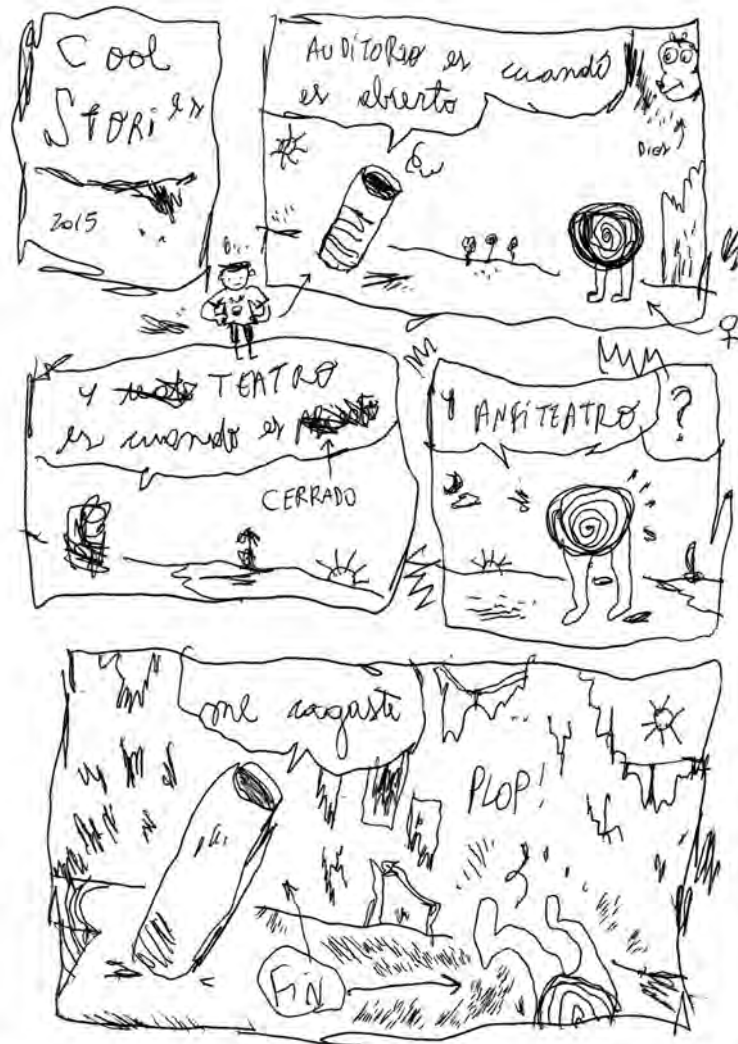 Cool
STORIes
2015
AUDITORIO es cuando
es abierto
DIOS
Y TEATRO
es cuando es
CERRADO
Y ANFITEATRO
?
me cagaste
PLOP!
FIN